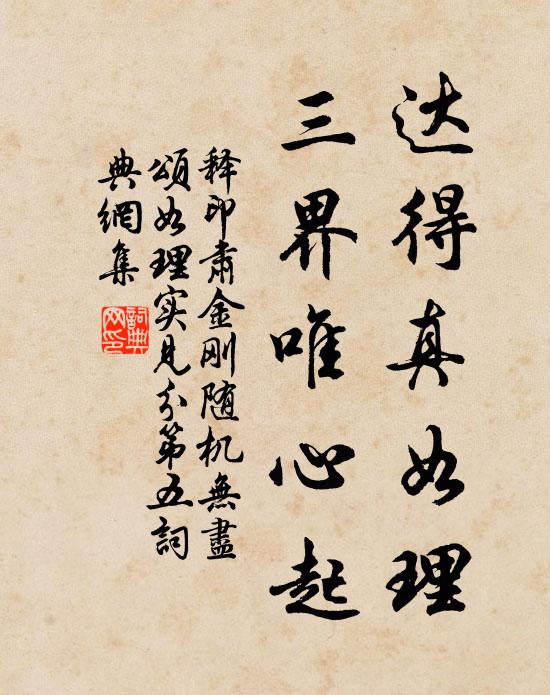 达得真如理
三界唯心起
释印肃金刚随机無盡
頌如理实见分第五詞
典網集
詞典网印